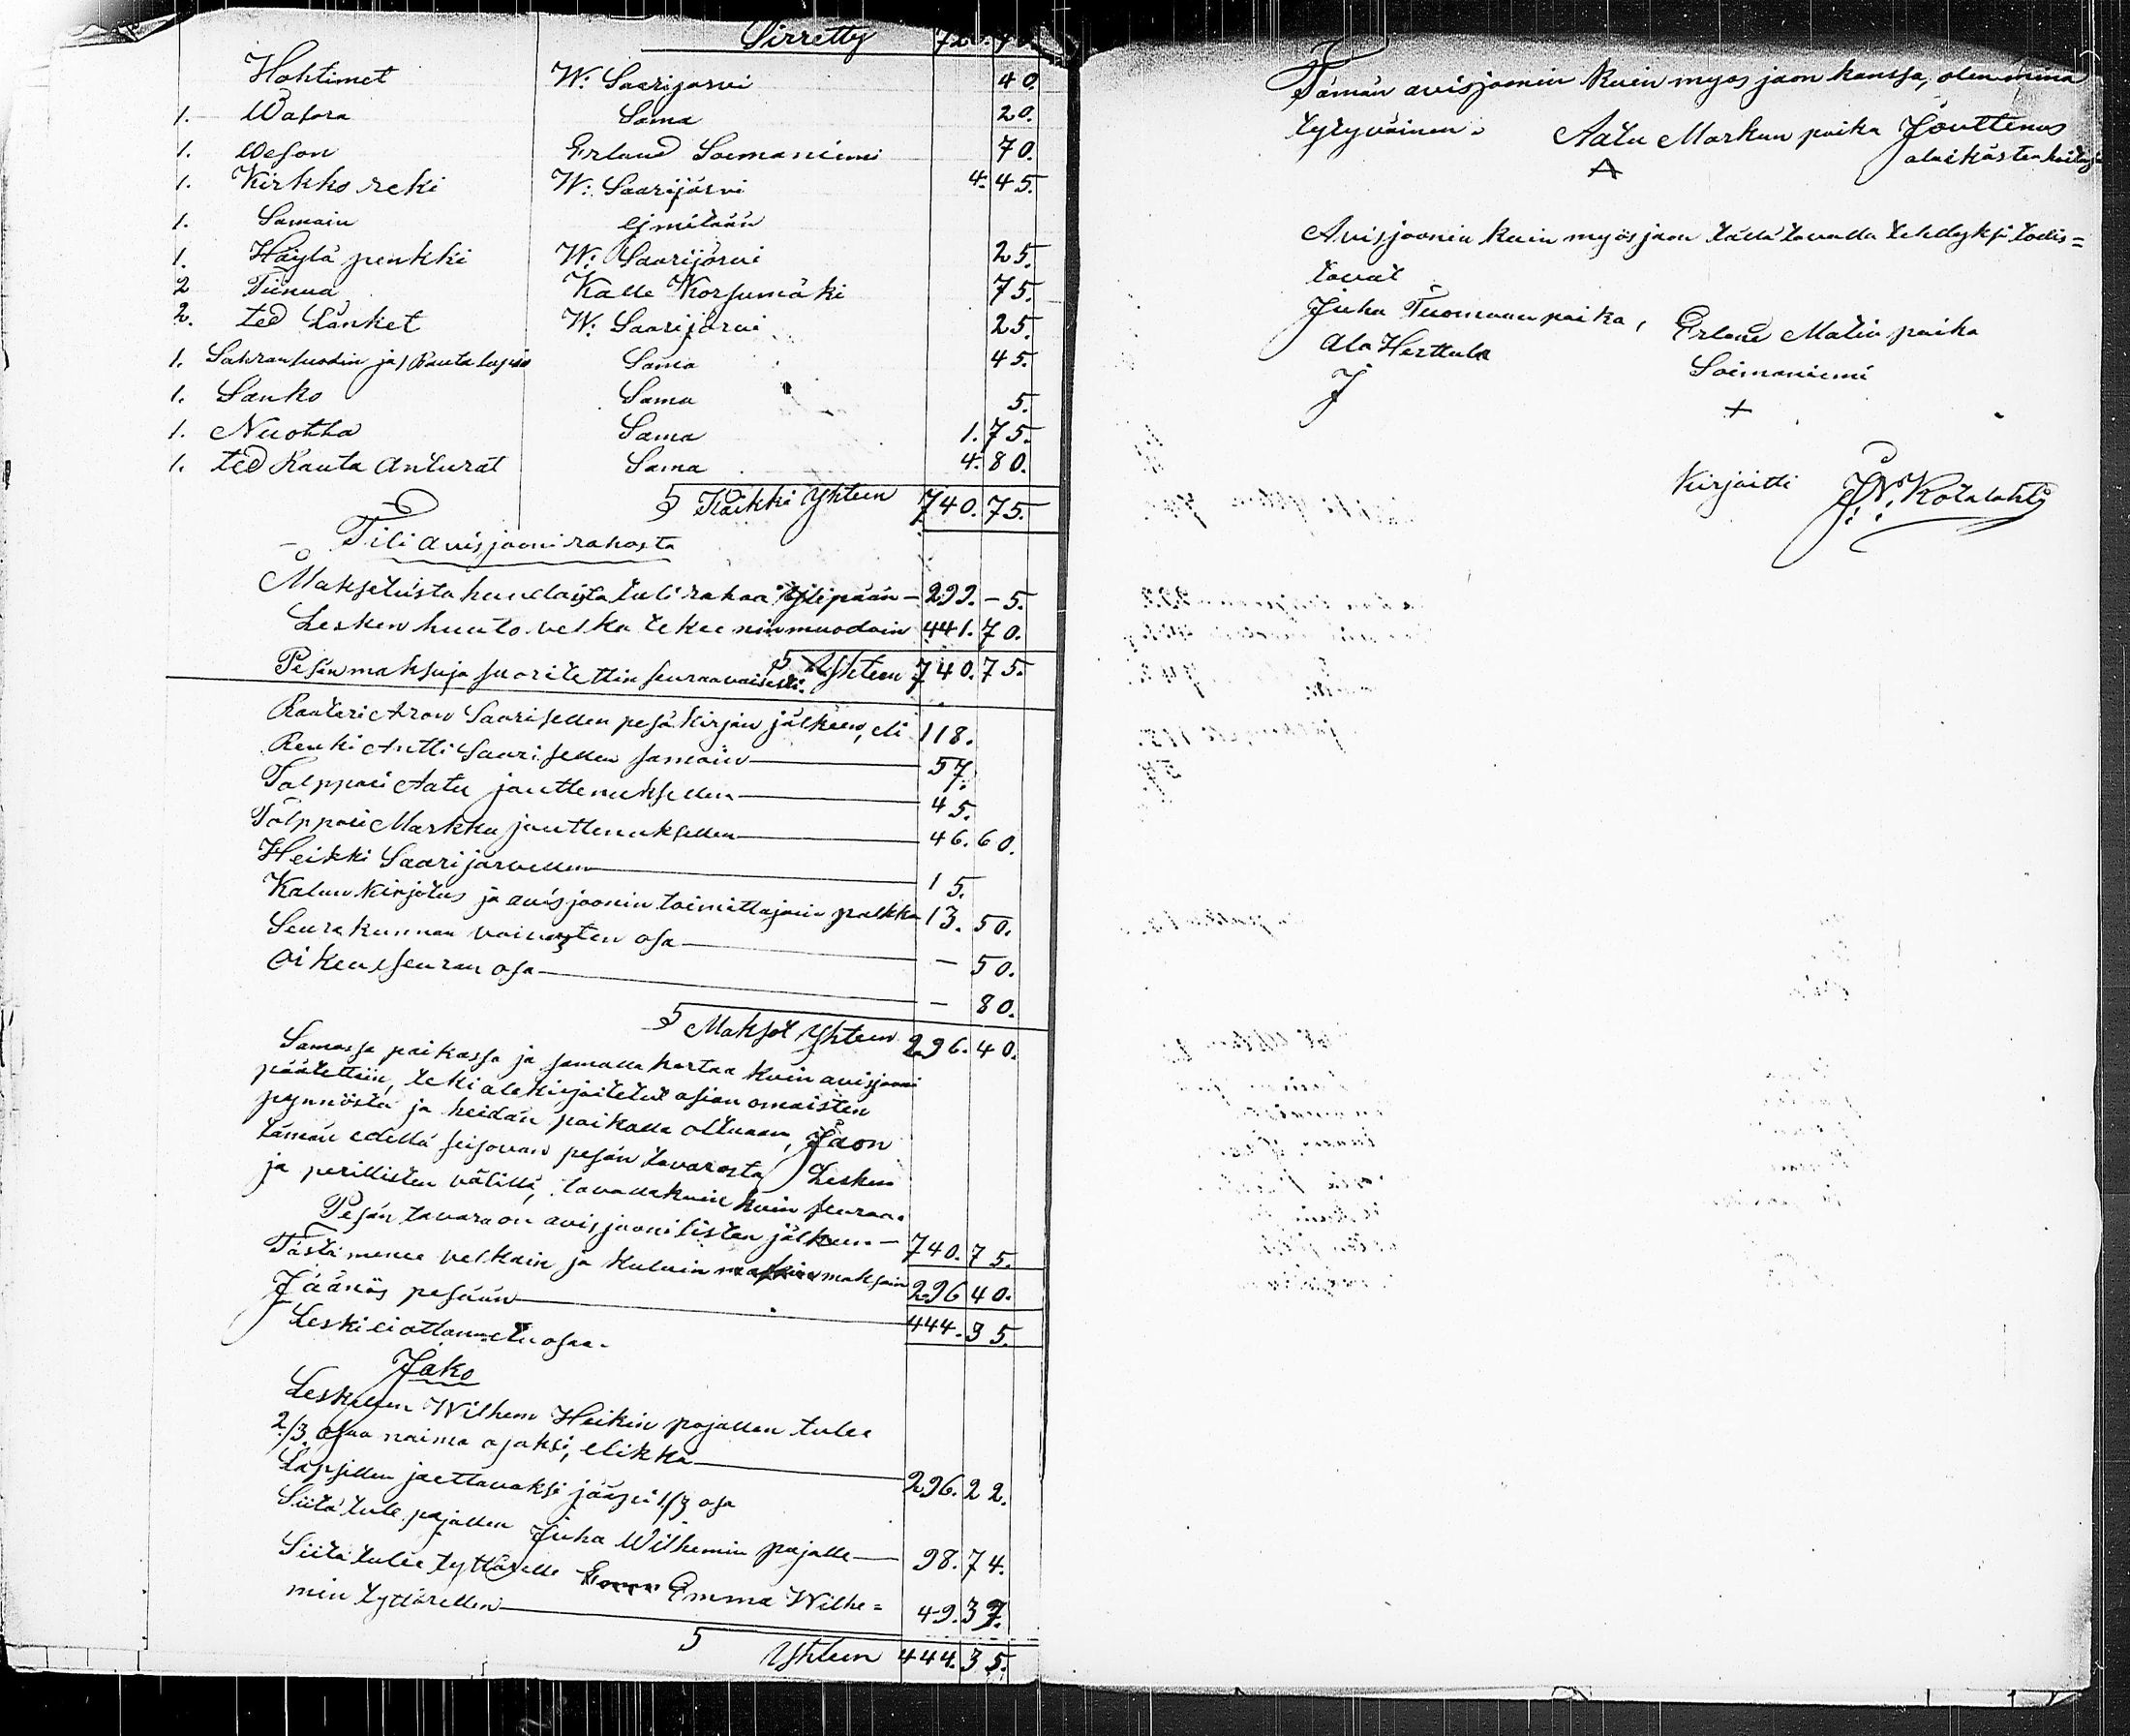 Sirretty
Hohtimet W: Saarijarvi 40.
1. Wasara Sama 20.
1. Weson Erland Soimaniemi 70.
1. Kirkko reki W: Saarijärvi 4.45.
1. Samain ej mitään
1. Häylä penkki W: Saarijärvi 25.
2 Tiinua Kalle Korsumäki 75.
2. ted Länket W: Saarijärvi 25.
1. Sahran luodin ja 1 Rauta Sama 45.
1. Sanko Sama 5.
1. Nuotta Sama 1.75.
1. ted Rauta anturat Sama 4.80.
Kaikki Yhteen 740.75.
Tili avisjooni rahosta
Maksetuista huudoista tuli rahaa Ylipään - 299. - 5.
Lesken huuto velka tekee nin muodoin 441.70.
Yhteen 740.75.
Pesän maksuja suoritettin seuraavaisesti.
Raatari Aron Saarisellen pesä kirjan jälkeen, eli 118.
Renki Antti Saarisellen samoin 57.
Talppari Aatu jouttenuksellen 45.
Tölppari Markku jouttenuksellen 46.60.
Heikki Saarijärvellen 15.
Kalun kirjotus ja avisjoonin toimittajain palkka 13.50.
Seurakunnan vaivasten osa - 50.
Oikeus seuran osa - 80.
Maksot Yhteen 296.40.
Samassa paikassa ja samalla kertaa kuin avisjooni
päätettiin, teki alekirjoitetut asian omaisten
pynnöstä ja heidän paikalla olluaan, Jaon
tämän edellä seisovan pesän tavarasta Lesken
ja perillisten välillä, tavalla kuin seuraa.
Pesän tavara on avisjooni listan jälkeen - 740.75.
Tästä menee velkain ja kuluin maksain 296 40.
Jäänös pesään 444.35.
Leski ei ottanu etu osaa.
Jako
Leskellen Wilhem Heikin pojallen tulee
2/3 osaa naima ojaksi, elikkä 296.22.
Lapsillen jaettavaksi jääpi 1/3 osa
Siitä tule pojallen Juha Wilhemin pojalle 98.74.
Siitä tulee tyttärelle Emma Wilhe=
min tyttärellen 49.37.
Yhteen 444.35.
Tämän avisjoonin kuin myös jaon kanssa, olen minä
tytyväinen. Aatu Markun poika Jouttenus
A
Avisjoonin kuin myös jaon tällä tavalla tehdyksi todis=
tavat
Juha Tuomaan poika, Erland Matin poika
Ala Herttula Soimaniemi
J +
Kirjoitti J. W. Kotalahti